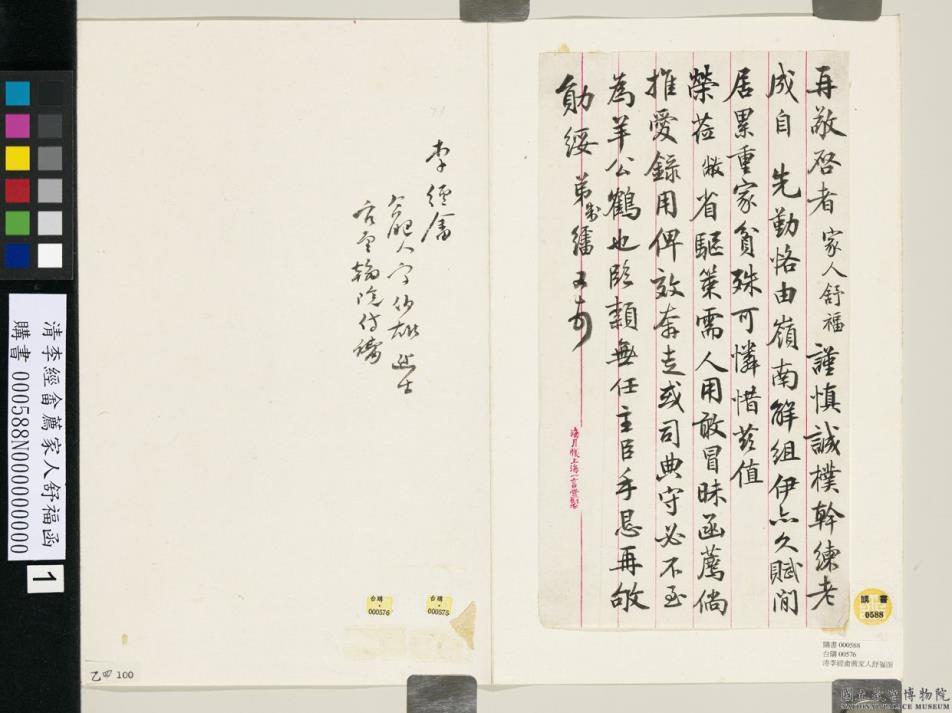 再敬啓者家人舒福謹慎誠樸幹練老
成自 先勤恪由嶺南解組伊亦久賦閒
居累重家貧殊可憐惜茲值
榮蒞敝省驅策需人用敢冒昧函薦倘
推愛錄用俾效奔走或司典守必不至
為羊公鶴也臨穎無任主臣手恳再敂
勛綏 弟
又頓
李經畬
合肥人字伯雄進士
官至翰院侍講
清李經畬薦家人舒福函
購書 000588N000000000
1
台購
000576
台購
000575
購書
0588
乙四 100
購書 000588
台購 00576
清李經畬薦家人舒福函
國立故宮博物院
NATIONAL PALACE MUSEUM